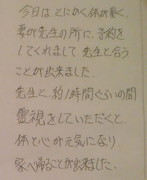 今日は、とにかく体が重く、
孝の先生の所に、予約を
してくれまして先生と会う
ことが出来ました。
先生と、約1時間ぐらいの間
霊視をしていただくと
体と心が元気になり
家へ帰ることが出来ました。